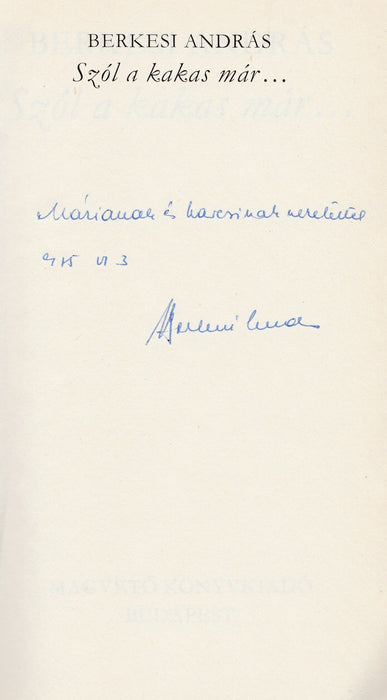 BERKESI ANDRÁS
Szól a kakas már...
Máriának és Karcsinak szeretettel
975 VI 3
Berkesi András
MAGVETŐ KÖNYVKIADÓ
BUDAPEST